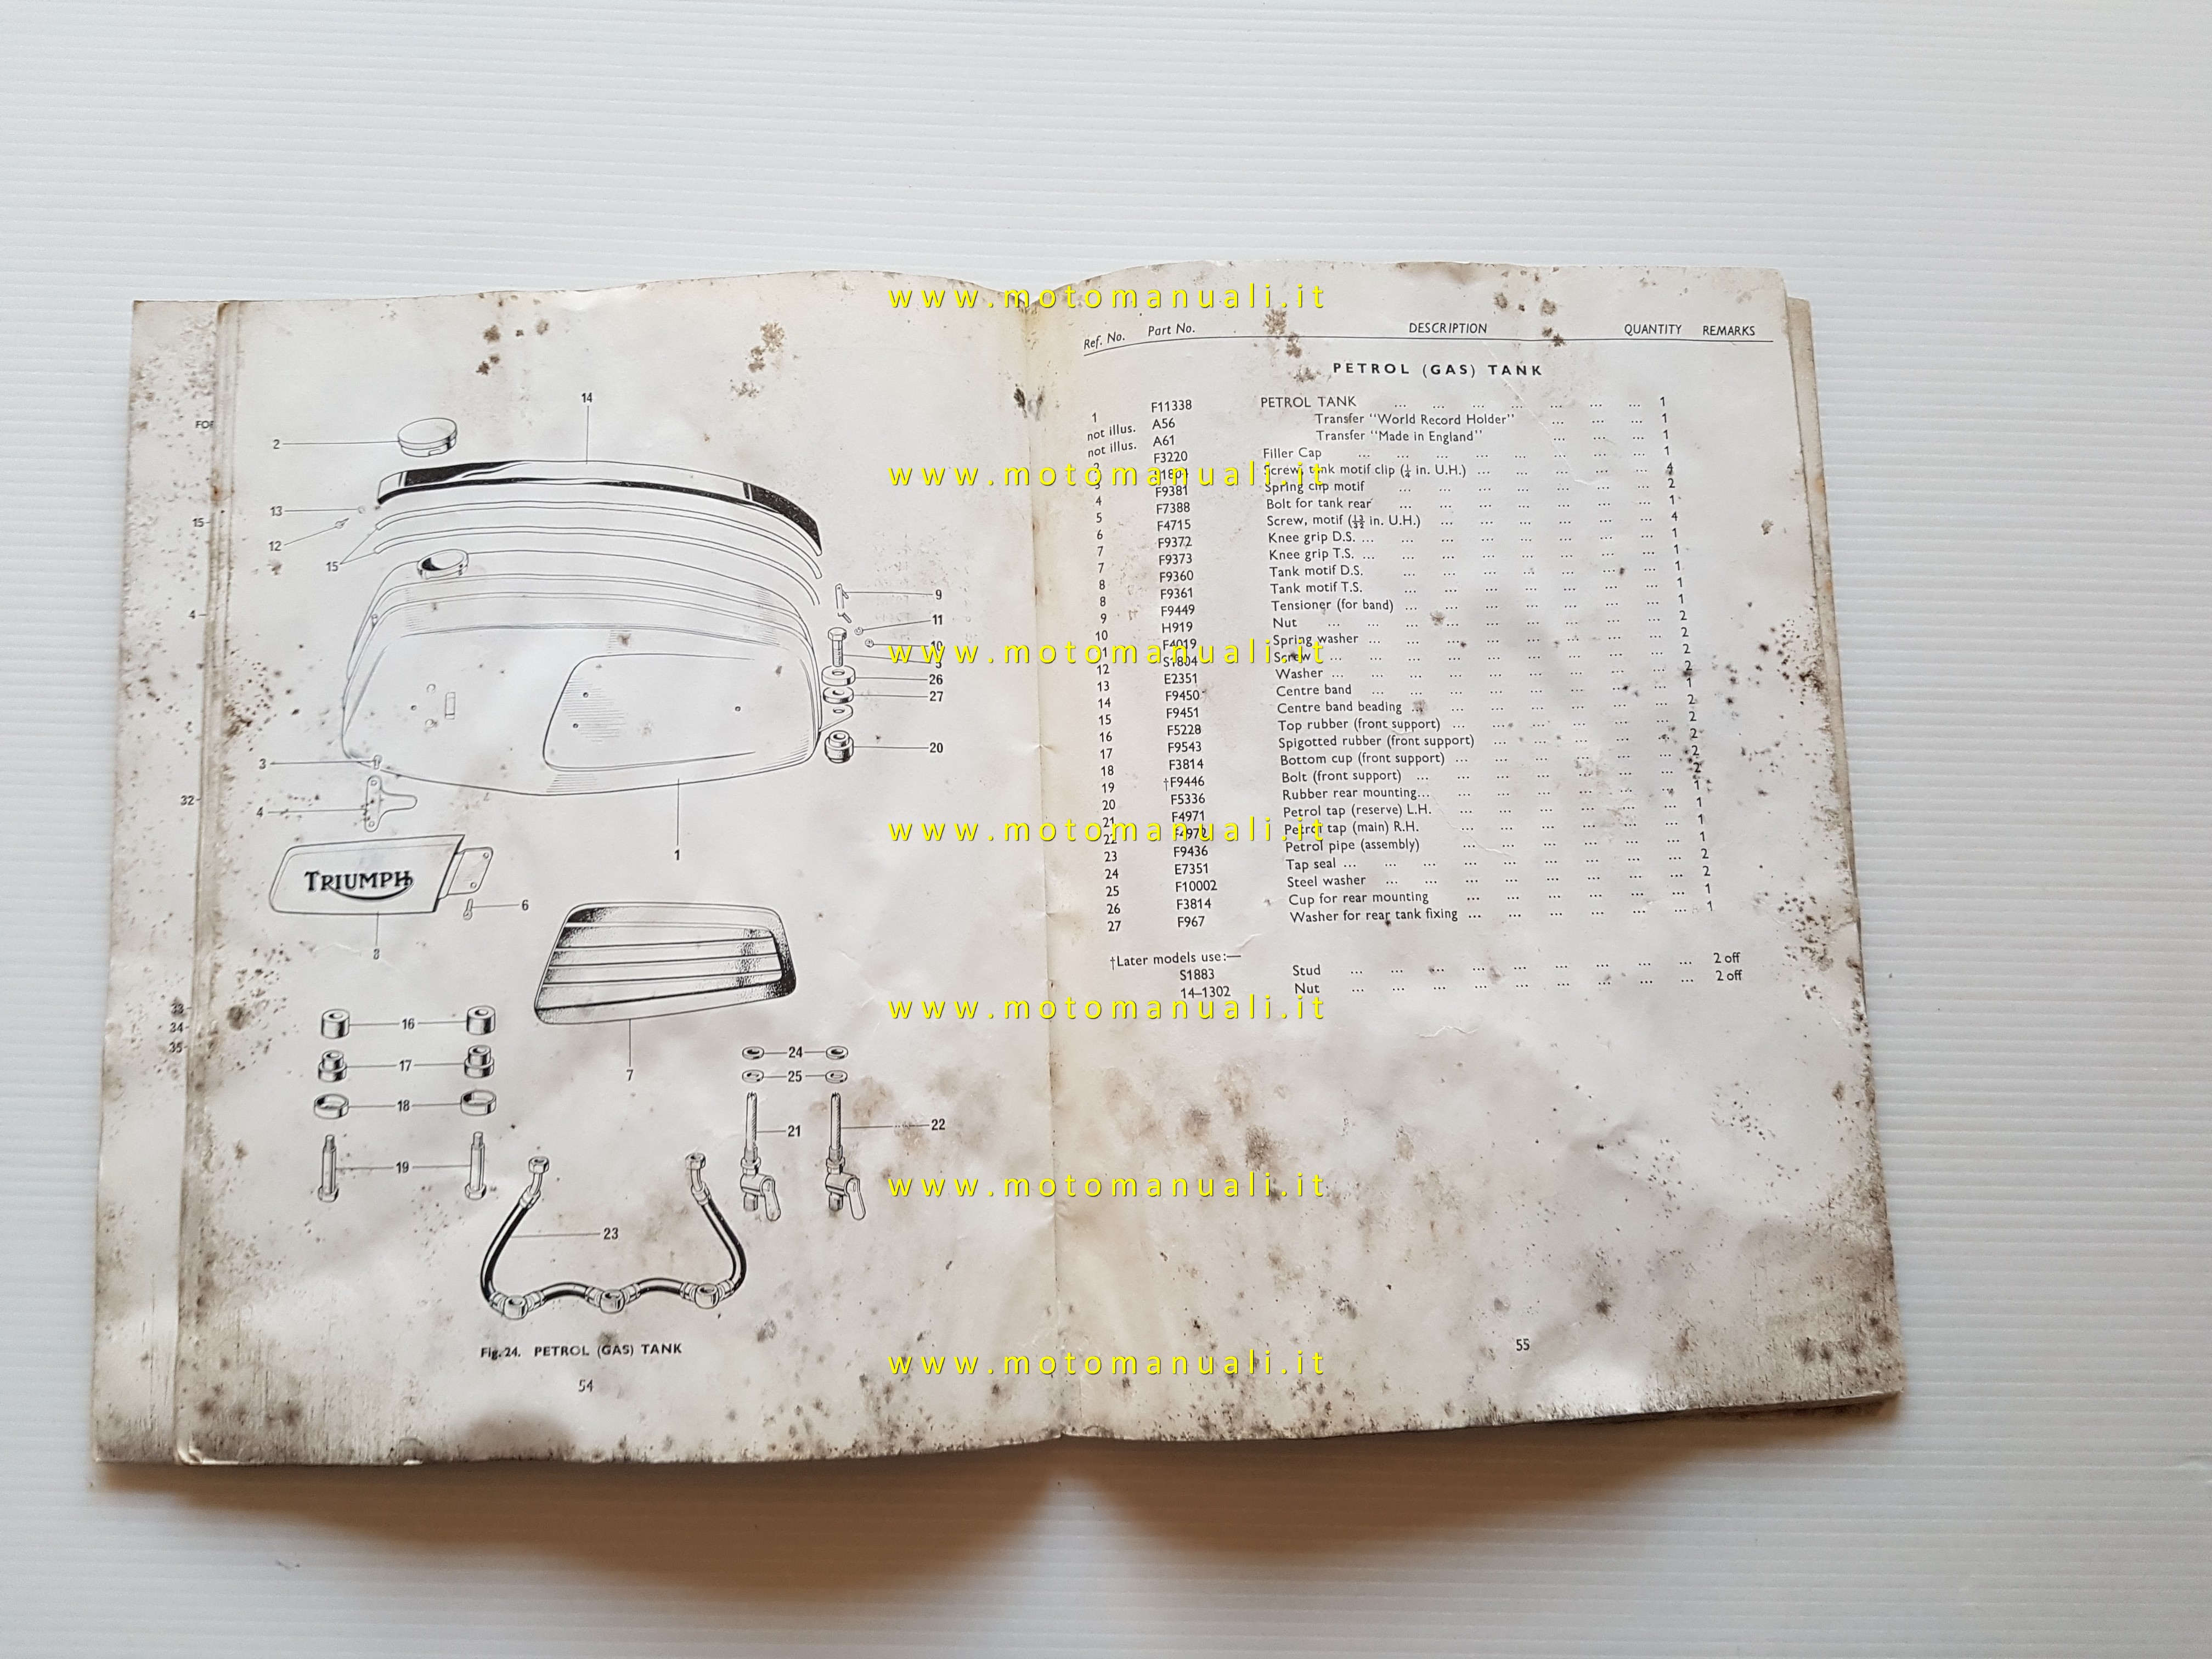 www.motomanuali.it
www.motomanuali.it
www.motomanuali.it
www.motomanuali.it
www.motomanuali.it
www.motomanuali.it
www.motomanuali.it
FOR
15
4
32
33
34
35
14
2
13
12
15
9
11
10
5
26
27
20
3
4
1
TRIUMPH
6
8
7
16
17
18
19
24
25
21
22
23
Fig. 24. PETROL (GAS) TANK
54
Ref. No. Part No. DESCRIPTION QUANTITY REMARKS
PETROL (GAS) TANK
1 F11338 PETROL TANK ... ... ... ... ... ... ... 1
not illus. A56 Transfer "World Record Holder" ... ... ... 1
not illus. A61 Transfer "Made in England" ... ... ... 1
2 F3220 Filler Cap ... ... ... ... ... ... ... 1
3 Screw, tank motif clip (¼ in. U.H.) ... ... ... ... ... 4
4 F9381 Spring clip motif ... ... ... ... ... ... ... 2
5 F7388 Bolt for tank rear ... ... ... ... ... ... ... 1
6 F4715 Screw, motif (13/32 in. U.H.) ... ... ... ... ... ... 4
7 F9372 Knee grip D.S. ... ... ... ... ... ... ... ... 1
7 F9373 Knee grip T.S. ... ... ... ... ... ... ... ... 1
8 F9360 Tank motif D.S. ... ... ... ... ... ... ... 1
8 F9361 Tank motif T.S. ... ... ... ... ... ... ... 1
9 F9449 Tensioner (for band) ... ... ... ... ... ... ... 1
10 H919 Nut ... ... ... ... ... ... ... ... ... 2
11 F4019 Spring washer ... ... ... ... ... ... ... ... 2
12 S1804 Screw ... ... ... ... ... ... ... ... ... 2
13 E2351 Washer ... ... ... ... ... ... ... ... ... 2
14 F9450 Centre band ... ... ... ... ... ... ... ... 1
15 F9451 Centre band beading ... ... ... ... ... ... ... 2
16 F5228 Top rubber (front support) ... ... ... ... ... ... 2
17 F9543 Spigotted rubber (front support) ... ... ... ... ... 2
18 F3814 Bottom cup (front support) ... ... ... ... ... ... 2
19 †F9446 Bolt (front support) ... ... ... ... ... ... ... 2
20 F5336 Rubber rear mounting... ... ... ... ... ... ... 1
21 F4971 Petrol tap (reserve) L.H. ... ... ... ... ... ... 1
22 F4972 Petrol tap (main) R.H. ... ... ... ... ... ... 1
23 F9436 Petrol pipe (assembly) ... ... ... ... ... ... 1
24 E7351 Tap seal ... ... ... ... ... ... ... ... ... 2
25 F10002 Steel washer ... ... ... ... ... ... ... ... 2
26 F3814 Cup for rear mounting ... ... ... ... ... ... 1
27 F967 Washer for rear tank fixing ... ... ... ... ... ... 1
†Later models use:—
S1883 Stud ... ... ... ... ... ... ... ... ... 2 off
14–1302 Nut ... ... ... ... ... ... ... ... ... 2 off
55